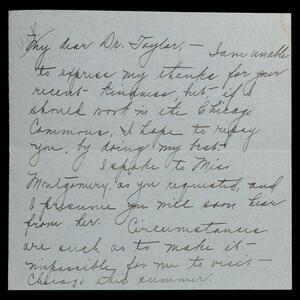 My dear Dr. Taylor, — I am unable
to express my thanks for your
recent kindness, but if I
should work in the Chicago
Commons, I hope to repay
you, by doing my best.
I spoke to Miss
Montgomery, as you requested, and
I presume you will soon hear
from her. Circumstances
are such as to make it
impossible for me to visit
Chicago this summer.